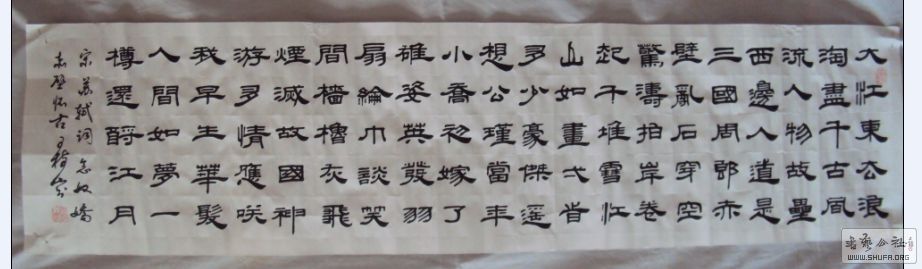 大江東去浪
淘盡千古風
流人物故壘
西邊人道是
三國周郎赤
壁亂石穿空
驚濤拍岸卷
起千堆雪江
山如畫弌旹
多少豪傑遥
想公瑾當年
小喬初嫁了
雄姿英發羽
扇綸巾談笑
間檣櫓灰飛
煙滅故國神
游多情應咲
我早生華髮
人間如夢一
樽還酹江月
宋蘇軾詞念奴嬌
赤壁怀古
WWW.SHUFA.ORG